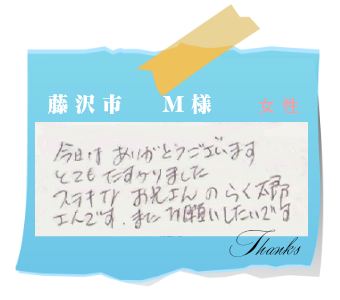 藤沢市 M様 女性
今日は ありがとうございます
とても たすかりました
ステキナ お兄さん の らく太郎
さんです。また お願いしたいです
Thanks